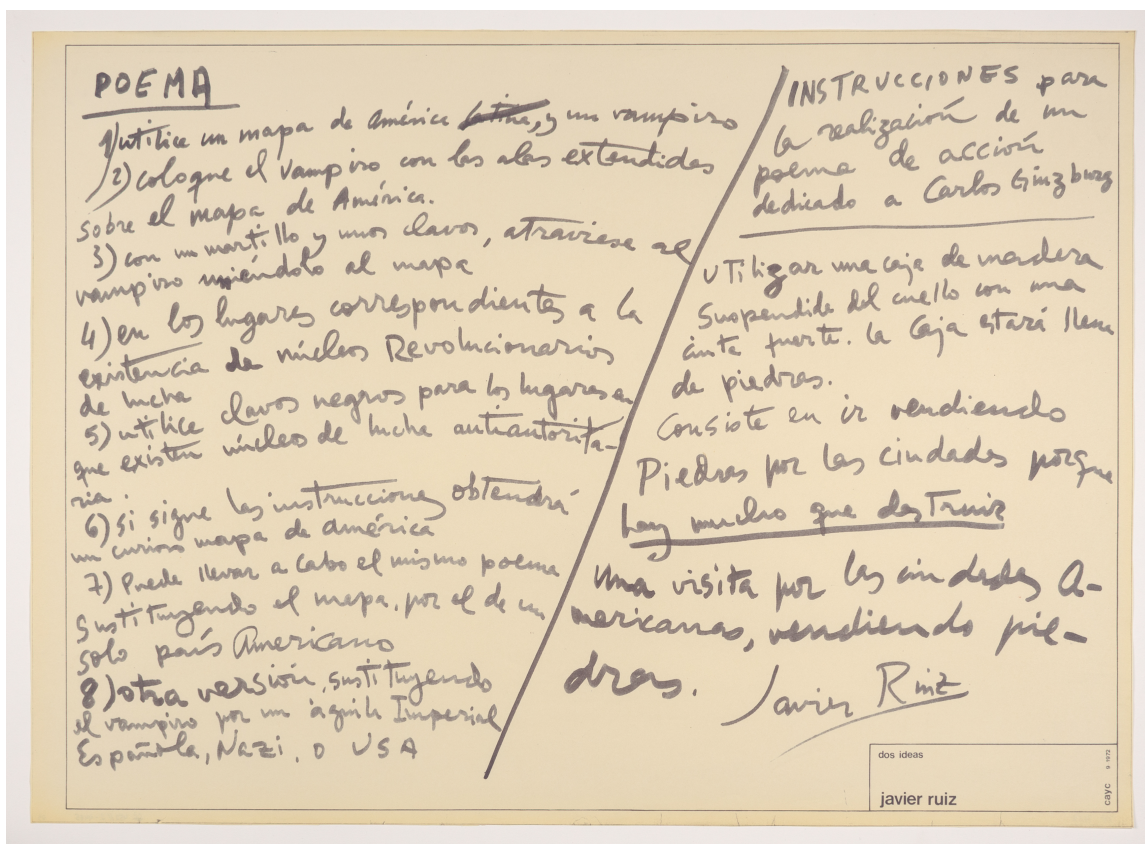 POEMA
1) utilice un mapa de américa latina, y un vampiro
2) coloque el vampiro con las alas extendidas
sobre el mapa de América.
3) con un martillo y unos clavos, atraviese al
vampiro uniéndolo al mapa
4) en los lugares correspondientes a la
existencia de núcleos Revolucionarios
de lucha
5) utilice clavos negros para los lugares en
que existen núcleo de lucha antiautorita-
ria.
6) si sigue las instrucciones obtendrá
un curioso mapa de américa
7) Puede llevar a cabo el mismo poema
sustituyendo el mapa, por el de un
solo país Americano
8) otra versión, sustituyendo
el vampiro por un águila Imperial
Española, Nazi, o USA
INSTRUCCIONES para
la realización de un
poema de acción
dedicado a Carlos Ginzburg
UTilizar una caja de madera
suspendida del cuello con una
cinta fuerte. la caja estará llena
de piedras.
Consiste en ir vendiendo
Piedras por las ciudades porque
hay mucho que desTruir
Una visita por las ciudades A-
mericanas, vendiendo pie-
dras.
Javier Ruiz
dos ideas
javier ruiz
cayc 9-1972